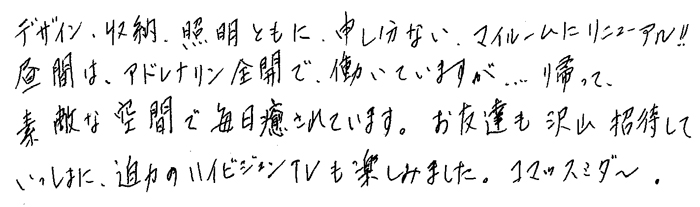 デザイン、収納、照明ともに、申し分ない、マイルームにリニューアル!!
昼間は、アドレナリン全開で、働いていますが…、帰って、
素敵な空間で毎日癒されています。お友達も沢山招待して
いっしょに、迫力のハイビジョンTVも楽しみました。コマッスミダ〜。